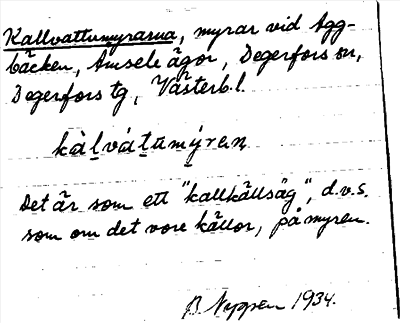 Kallvattumyrarna, myrar vid Agg-
bäcken, Amsele ägor, Degerfors sn,
Degerfors tg, Västerb.l.
kàlvátumýren
Det är som ett "kallkällsäg", d.v.s.
som om det vore källor, på myren.
B. Nyppen 1934.